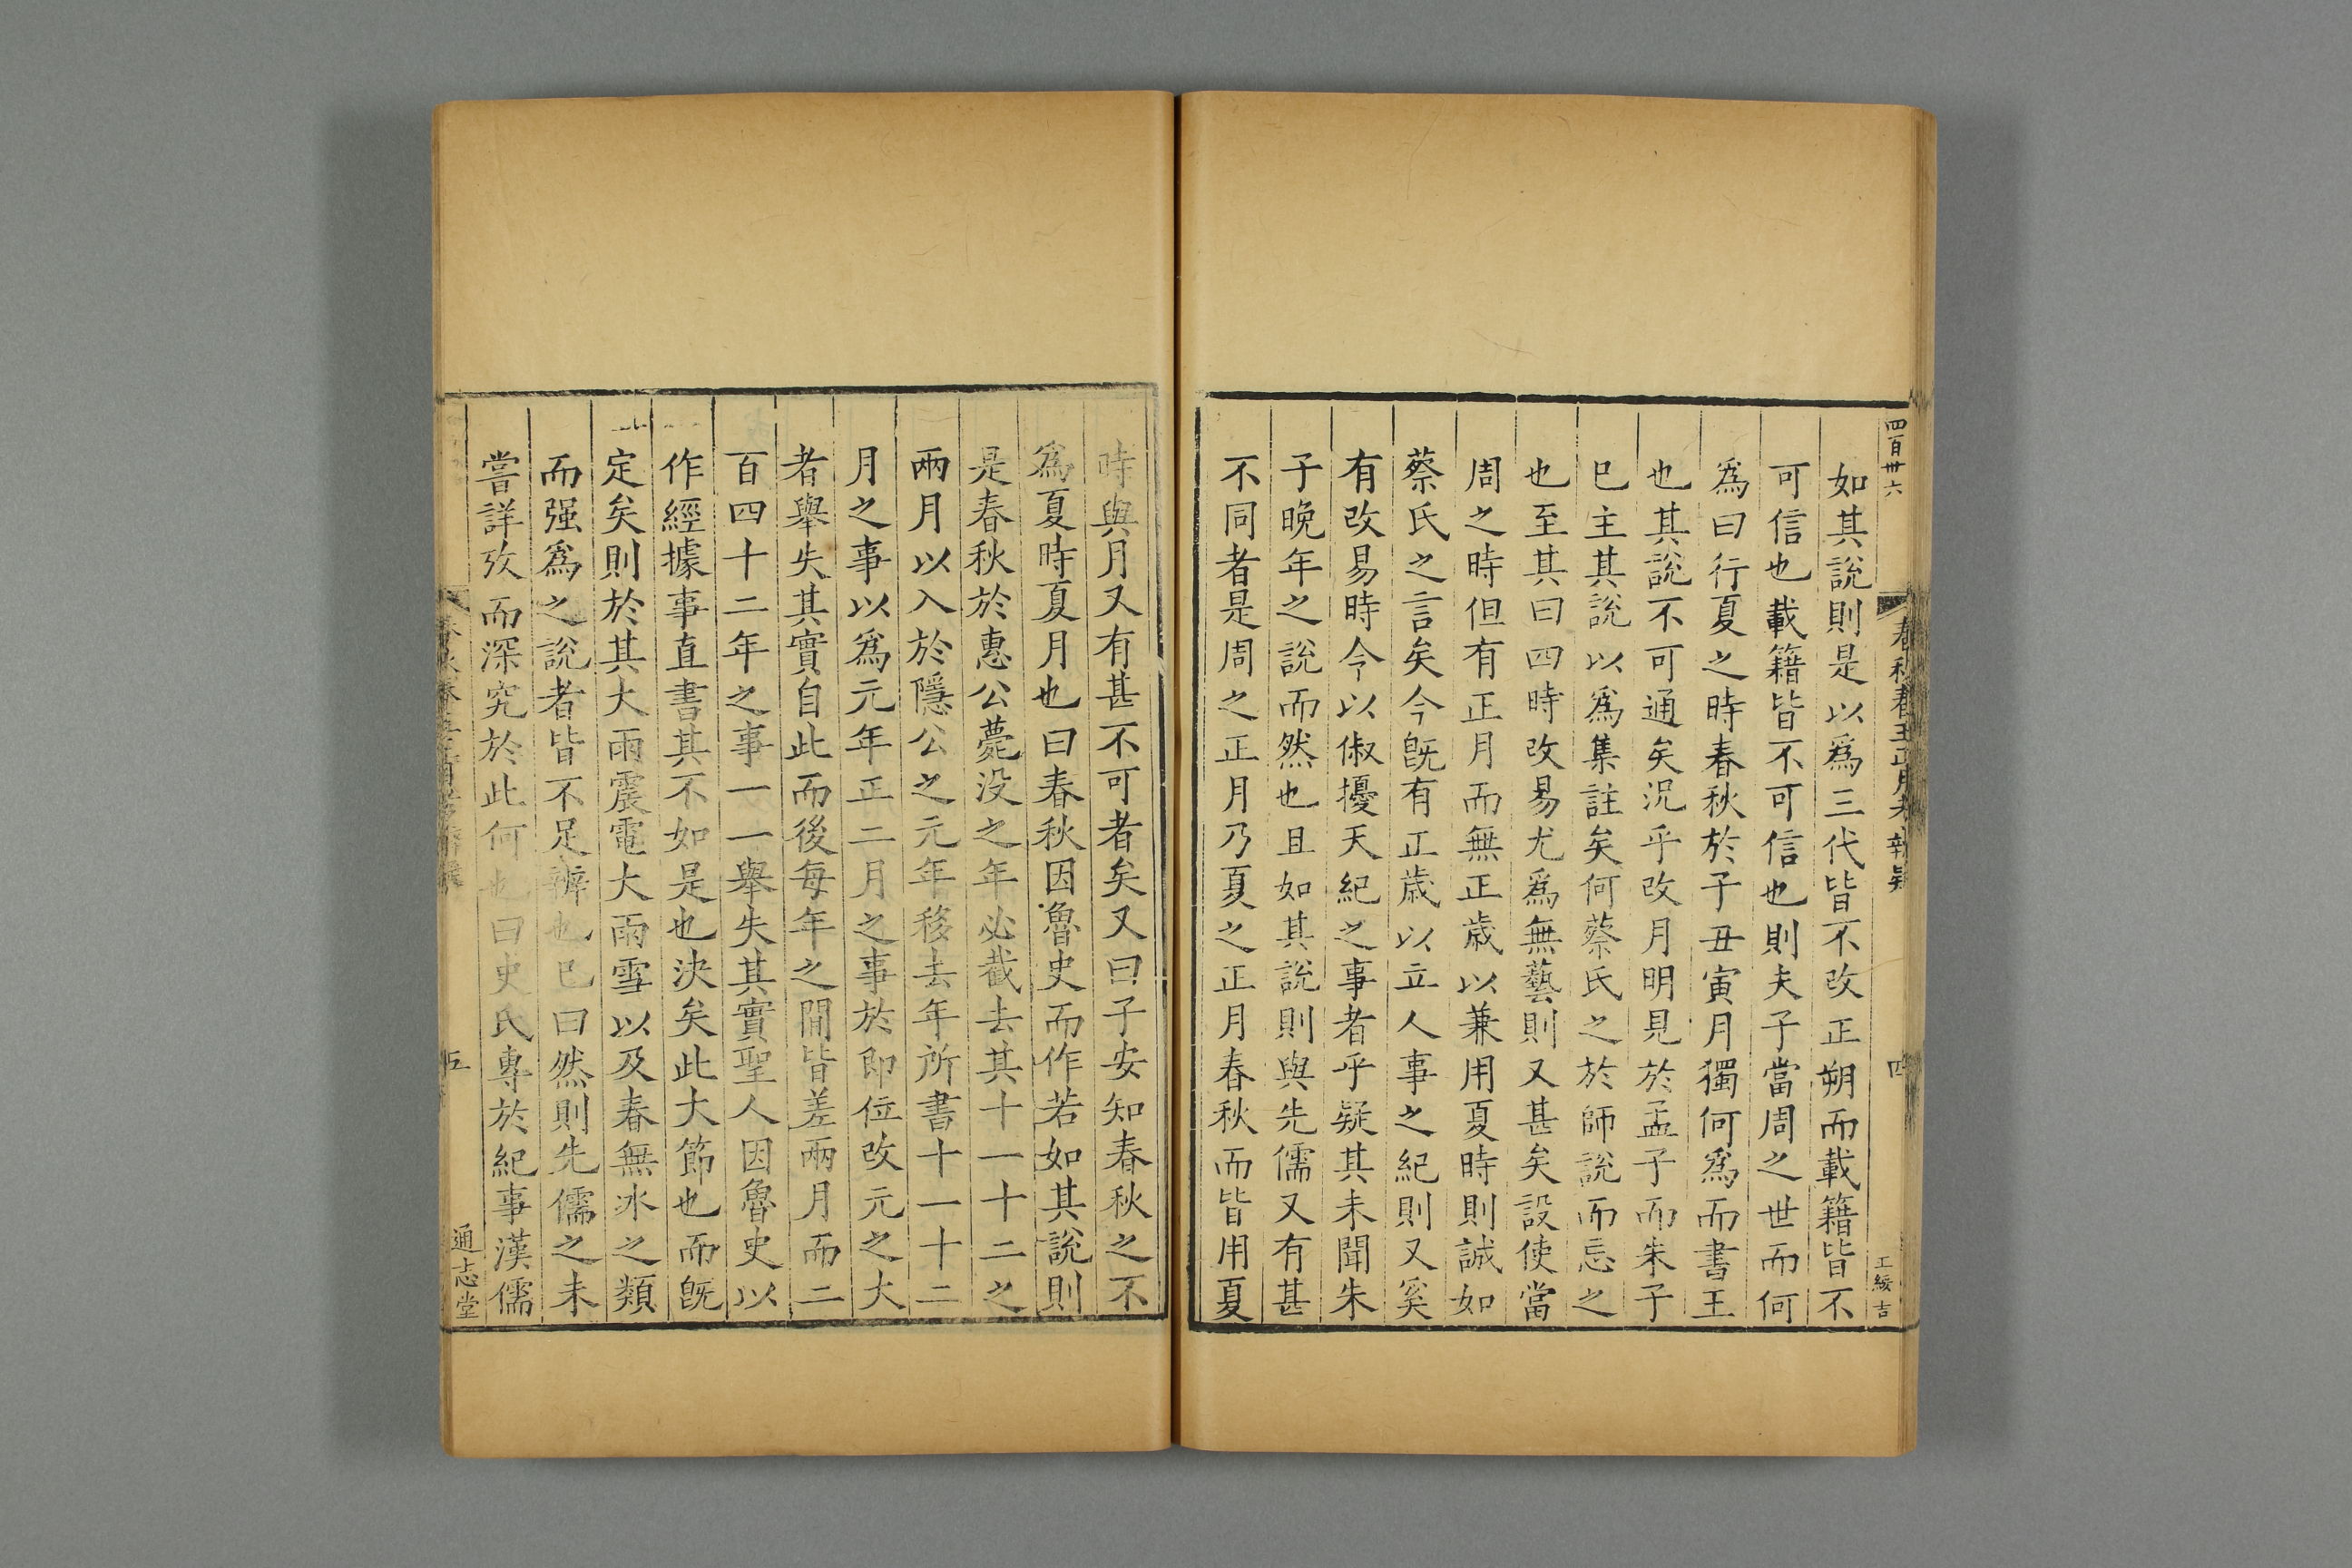 四百卅六
春秋春王正月考辨疑
四
王綏吉
如其說則是以爲三代皆不改正朔而載籍皆不
可信也載籍皆不可信也則夫子當周之世而何
爲曰行夏之時春秋於子丑寅月獨何爲而書王
也其說不可通矣況乎改月明見於孟子而朱子
巳主其說以爲集註矣何蔡氏之於師說而忘之
也至其曰四時改易尤爲無藝則又甚矣設使當
周之時但有正月而無正歲以兼用夏時則誠如
蔡氏之言矣今旣有正歲以立人事之紀則又奚
有改易時令以俶擾天紀之事者乎疑其未聞朱
子晚年之說而然也且如其說則與先儒又有甚
不同者是周之正月乃夏之正月春秋而皆用夏
時與月又有甚不可者矣又曰子安知春秋之不
爲夏時夏月也曰春秋因魯史而作若如其說則
是春秋於惠公薨没之年必截去其十一十二之
兩月以入於隱公之元年移去年所書十一十二
月之事以爲元年正二月之事於即位改元之大
者舉失其實自此而後每年之閒皆差兩月而二
百四十二年之事一一舉失其實聖人因魯史以
作經據事直書其不如是也決矣此大節也而旣
定矣則於其大雨震電大雨雪以及春無冰之類
而强爲之說者皆不足辨也巳曰然則先儒之未
嘗詳攷而深究於此何也曰史氏專於紀事漢儒
五
通志堂